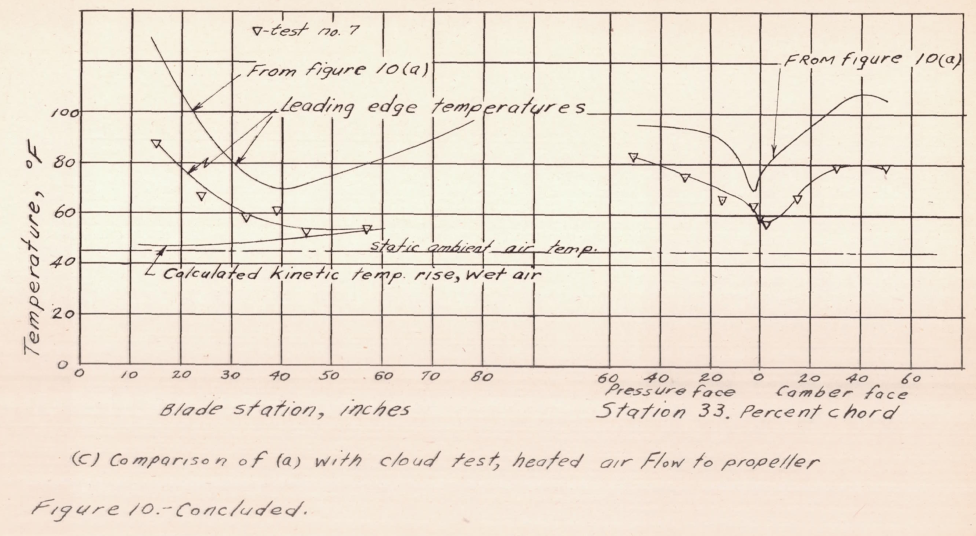 ▽-test no. 7
From figure 10(a)
Leading edge temperatures
FROM figure 10(a)
static ambient air temp.
Calculated kinetic temp. rise, wet air
Temperature, °F
100
80
60
40
20
0
0 10 20 30 40 50 60 70 80
60 40 20 0 20 40 60
Pressure face Camber face
Blade station, inches
Station 33. Percent chord
(C) Comparison of (a) with cloud test, heated air flow to propeller
Figure 10.-Concluded.